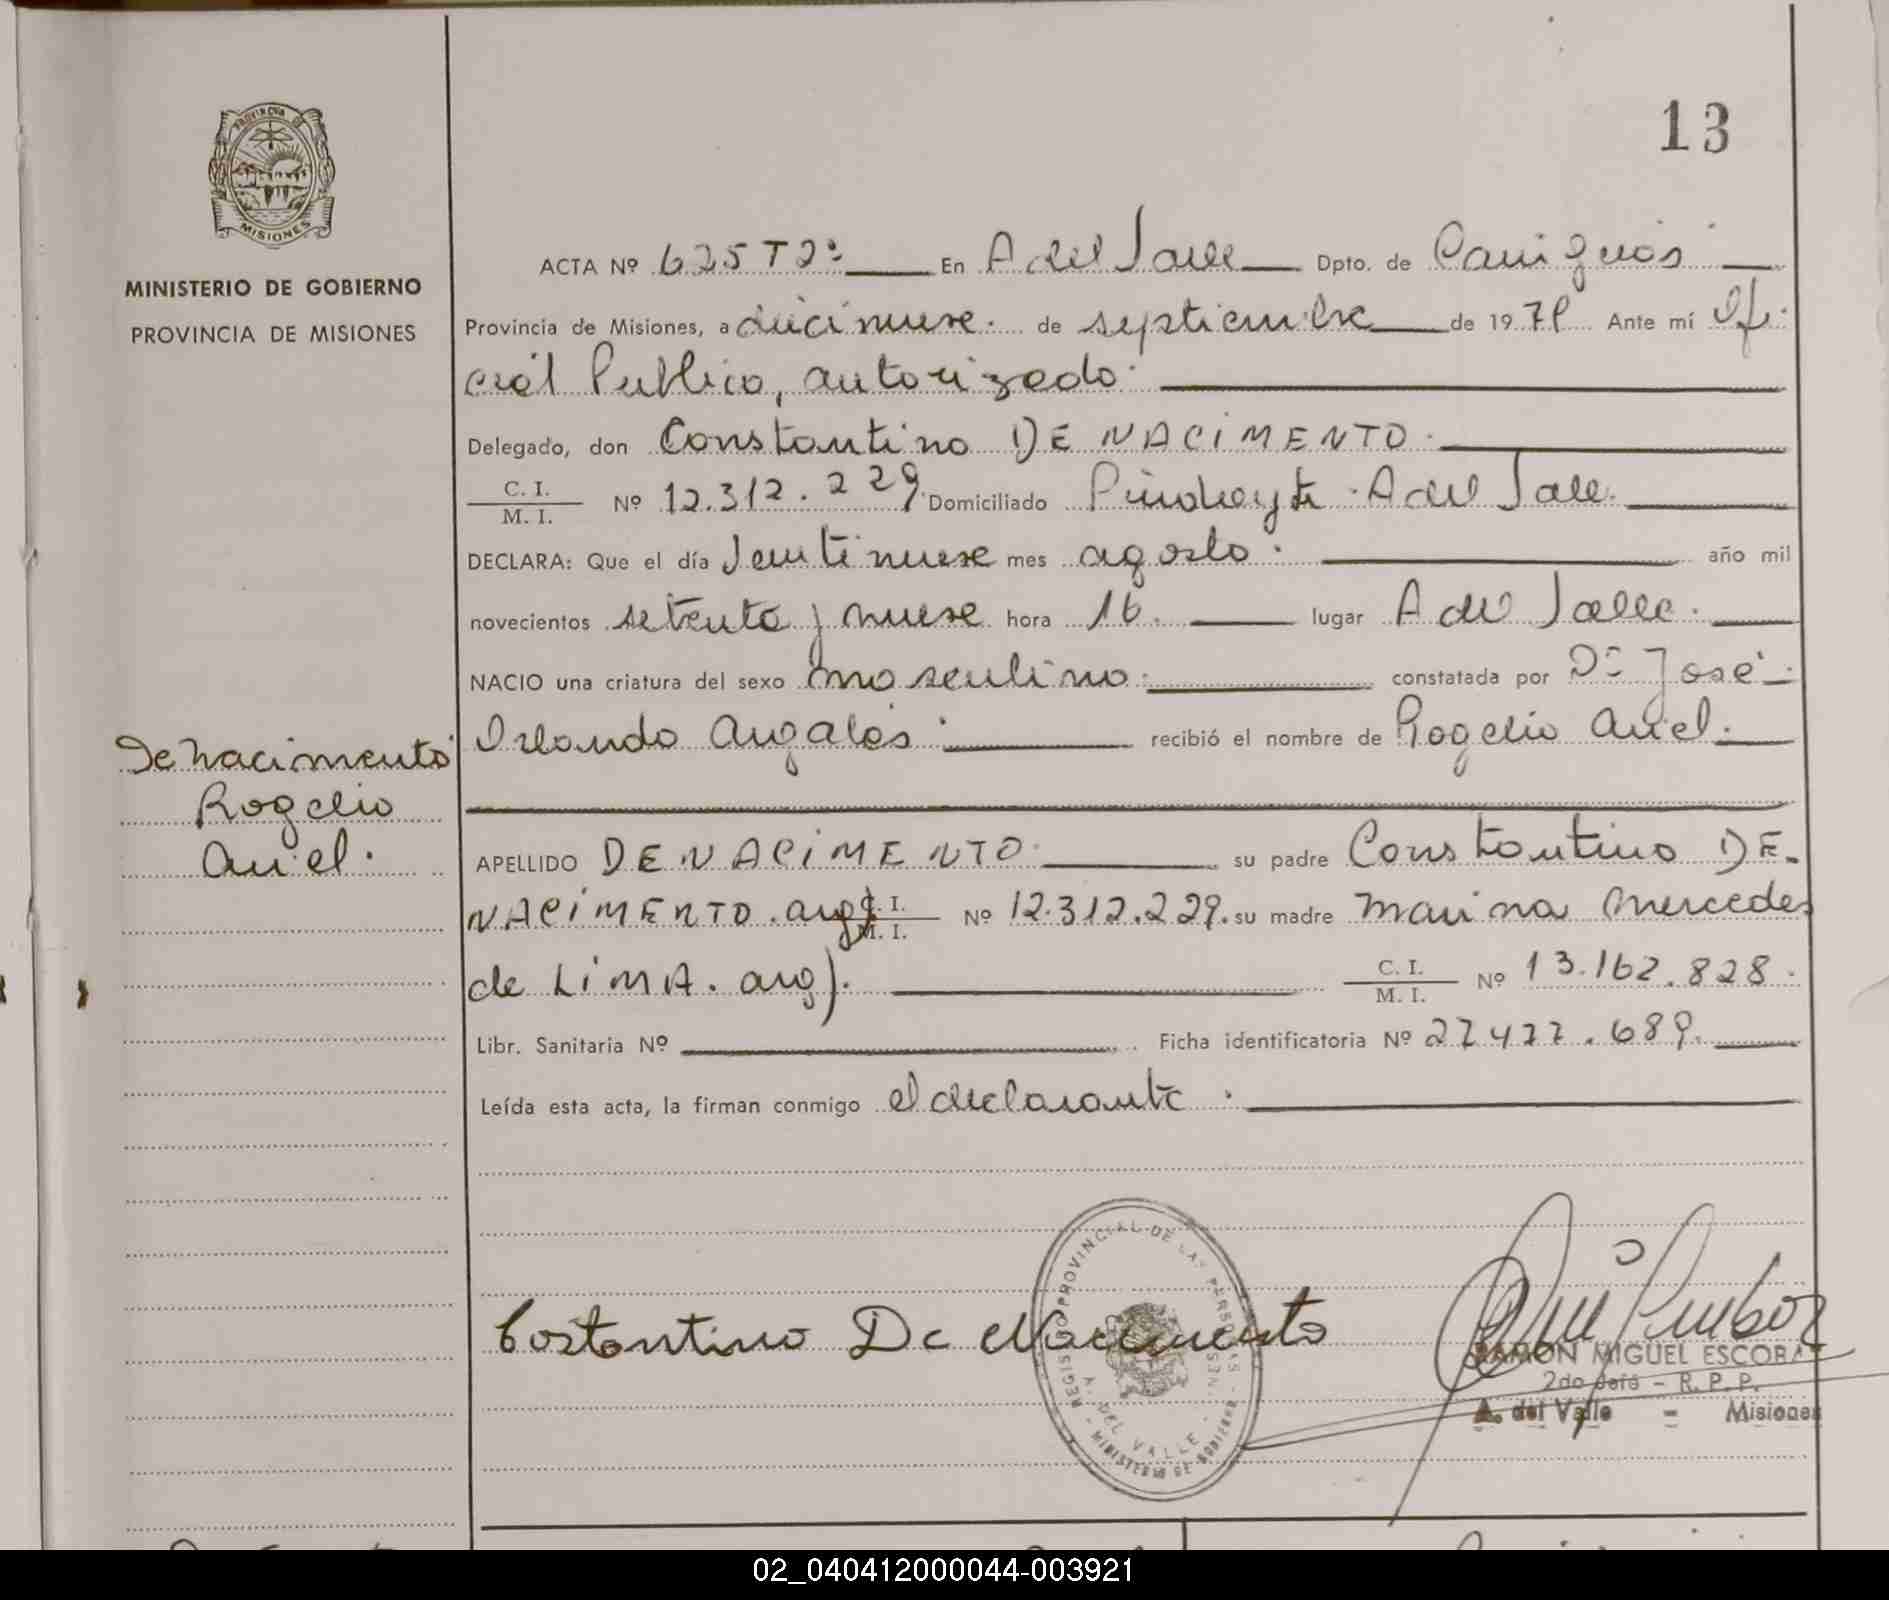 13
PROVINCIA DE
MISIONES
MINISTERIO DE GOBIERNO
PROVINCIA DE MISIONES
ACTA Nº 625 T2º En A del Valle Dpto. de Cainguás
Provincia de Misiones, a diecinueve de septiembre de 1979 Ante mí Ofi
cial Publico, autorizado
Delegado, don Constantino DE NACIMENTO.
C. I.
M. I. Nº 12.312.229 Domiciliado Pindayti - A del Valle.
DECLARA: Que el día Veintinueve mes agosto. año mil
novecientos setenta y nueve hora 16. lugar A del Valle.
NACIO una criatura del sexo masculino. constatada por Dr José
Orlando Argalós recibió el nombre de Rogelio Ariel.
De Nacimento
Rogelio
Ariel.
APELLIDO DE NACIMENTO. su padre Constantino DE
NACIMENTO. arg) C. I.
M. I. Nº 12.312.229. su madre Marina Mercedes
de LIMA. arg). C. I.
M. I. Nº 13.162.828.
Libr. Sanitaria Nº Ficha identificatoria Nº 27477.689.
Leída esta acta, la firman conmigo el declarante.
Costantino De Nacimento
REGISTRO PROVINCIAL DE LAS PERSONAS
A. DEL VALLE
MINISTERIO DE GOBIERNO
RAMON MIGUEL ESCOBA
2do Jefe - R. P. P.
A. del Valle - Misiones
02_040412000044-003921